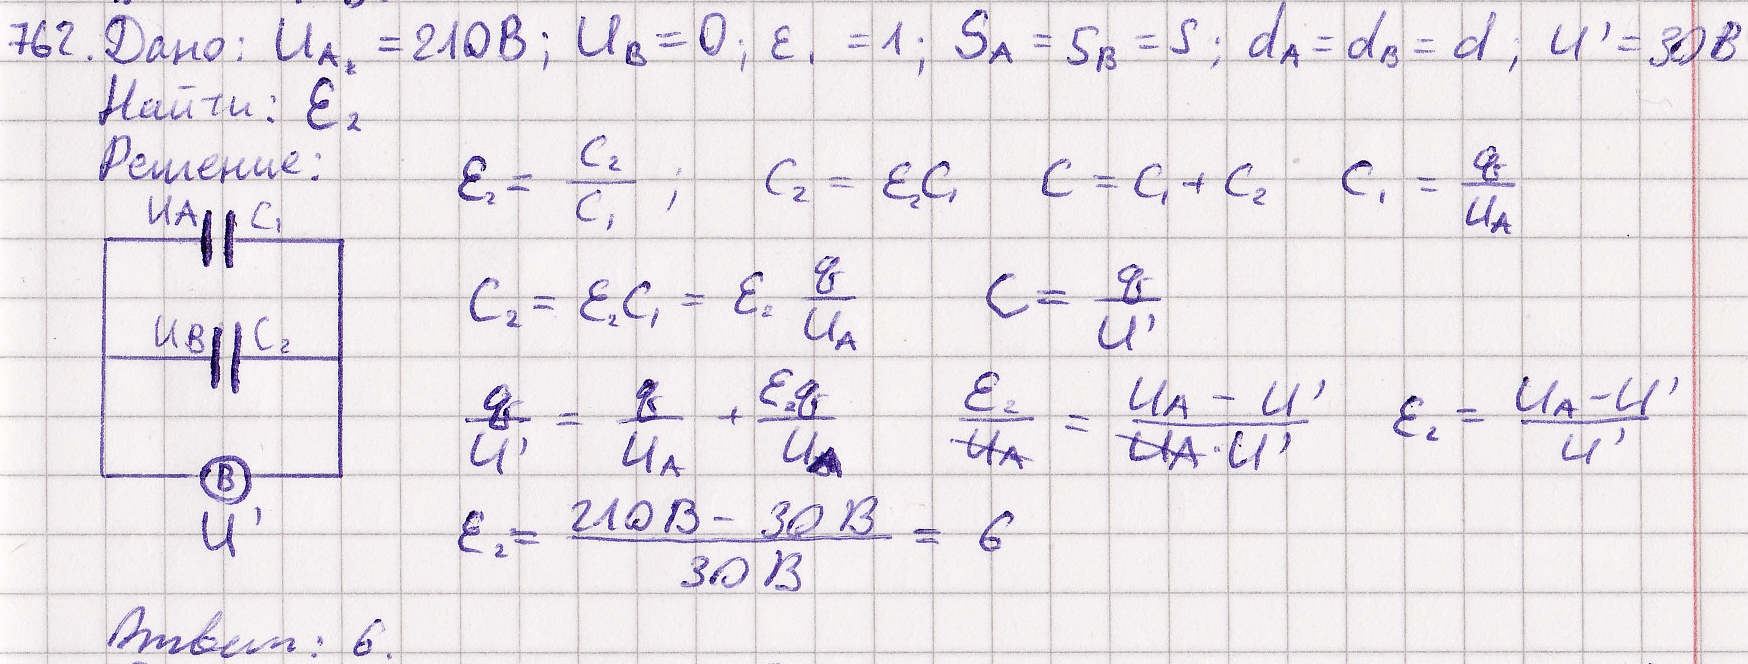 762. Дано: U_A = 210В; U_B = 0; ε₁ = 1; S_A = S_B = S; d_A = d_B = d; U' = 30В
Найти: ε₂
Решение:
ε₂ = C₂/C₁; C₂ = ε₂C₁ C = C₁ + C₂ C₁ = q/U_A
U_A C₁
C₂ = ε₂C₁ = ε₂ q/U_A C = q/U'
U_B C₂
q/U' = q/U_A + ε₂q/U_A ε₂/U_A = (U_A - U')/(U_A · U') ε₂ = (U_A - U')/U'
В
U'
ε₂ = (210В - 30В)/30В = 6
Ответ: 6.